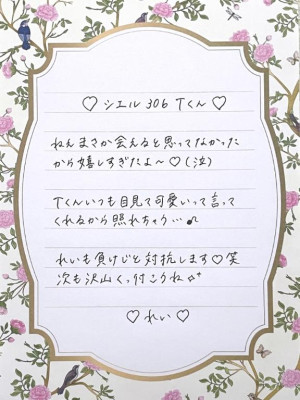 ♡ シエル 306 Tくん ♡
ねえまさか会えると思ってなかった
から嬉しすぎたよ〜♡(泣)
Tくんいつも目見て可愛いって言って
くれるから照れちゃう…♪
れいも負けじと対抗します♡笑
次も沢山くっ付こうね✧⁺
♡ れい ♡